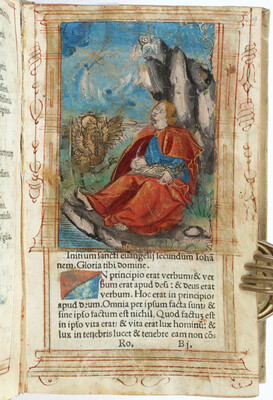 Initium sancti euangelij secundum Iohã
nem. Gloria tibi domine.
IN principio erat verbum: & ver
bum erat apud deũ: & deus erat
verbum. Hoc erat in principio
apud deum. Omnia per ipsum facta sunt: &
sine ipso factum est nichil. Quod factũ est
in ipso vita erat: & vita erat lux hominũ: &
lux in tenebris lucet & tenebre eam non cõ
Ro. B j.